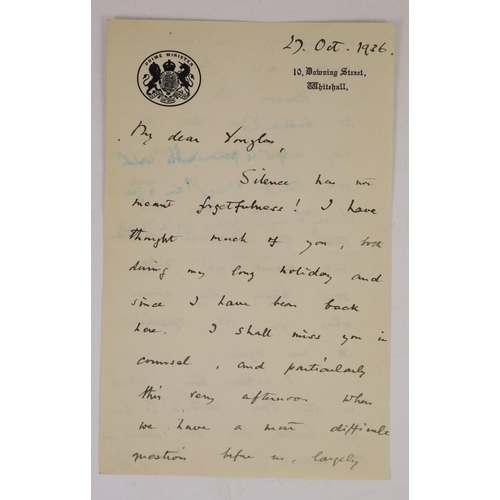 PRIME MINISTER
27. Oct. 1936.
10, Downing Street,
Whitehall.
My dear Douglas,
Silence has not
meant forgetfulness! I have
thought much of you, both
during my long holiday and
since I have been back
here. I shall miss you in
counsel, and particularly
this very afternoon when
we have a most difficult
question before us, largely